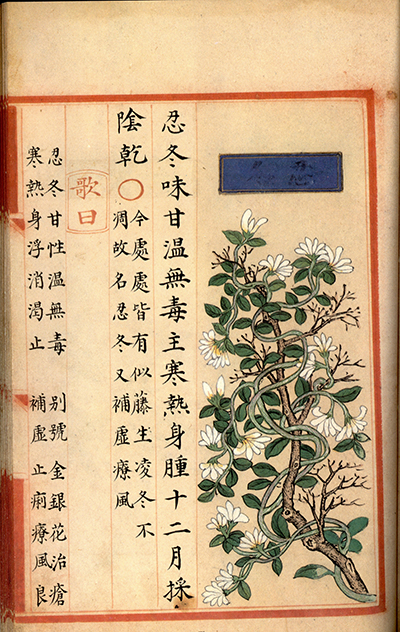 忍冬味甘溫無毒主寒熱身腫十二月採
陰乾○今處處皆有似藤生凌冬不
凋故名忍冬又補虛療風
歌曰
忍冬甘性溫無毒 別號金銀花治瘡
寒熱身浮消渴止 補虛止痢療風良